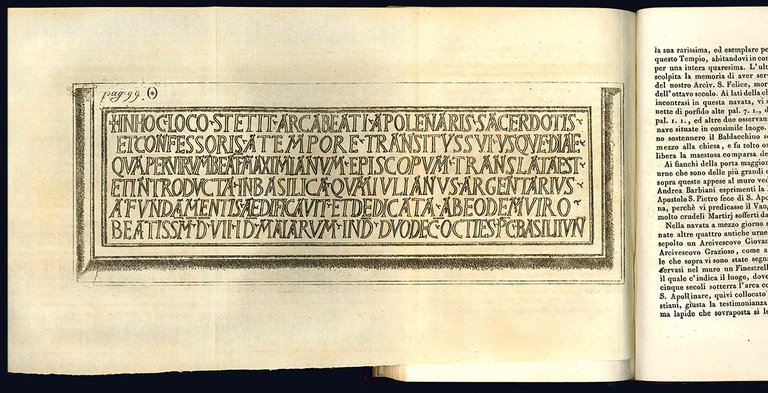 pag. 99.
✝ IN HOC LOCO · STETIT · ARCA BEATI · APOLENARIS · SACERDOTIS ·
ET CONFESSORIS · A TEMPORE · TRANSITVS SVI · VSQVE DIAE ·
QVA PER VIRVM BEAT · MAXIMIANVM · EPISCOPVM · TRANSLATA EST
ET INTRODVCTA · IN BASILICA · QVA IVLIANVS · ARGENTARIVS ·
A FVNDAMENTIS · AEDIFICAVIT · ET DEDICATA · AB EODEM VIRO ·
BEATISSM · D · VII · ID · MAIARVM · IND · DVODEC · OCTIES · PC · BASILII IVN
la sua rarissima, ed esemplare
questo Tempio, abitandovi in
per una intera quaresima.
scolpita la memoria di aver
del nostro Arciv. S. Felice,
dell'ottavo secolo. Ai lati della
incontrasi in questa navata, vi
nette di porfido alte pal. 7. 1.,
pal. 1. 1., ed altre due
nave situate in consimile luogo.
no sostennero il Baldacchino
mezzo alla chiesa, e fu tolto
libera la maestosa comparsa
Ai fianchi della porta
urne che sono delle più grandi
sopra queste appese al muro
Andrea Barbiani esprimenti la
Apostolo S. Pietro feco di S.
na, perchè vi predicasse il
molto crudeli Martirj sofferti
Nella navata a mezzo giorno
nate altre quattro antiche urne
sepolto un Arcivescovo
Arcivescovo Grazioso, come
le che sopra vi sono state
servasi nel muro un
il quale c'indica il luogo,
cinque secoli sotterra l'arca
S. Apollinare, quivi collocato
stiani, giusta la testimonianza
ma lapide che sovraposta si